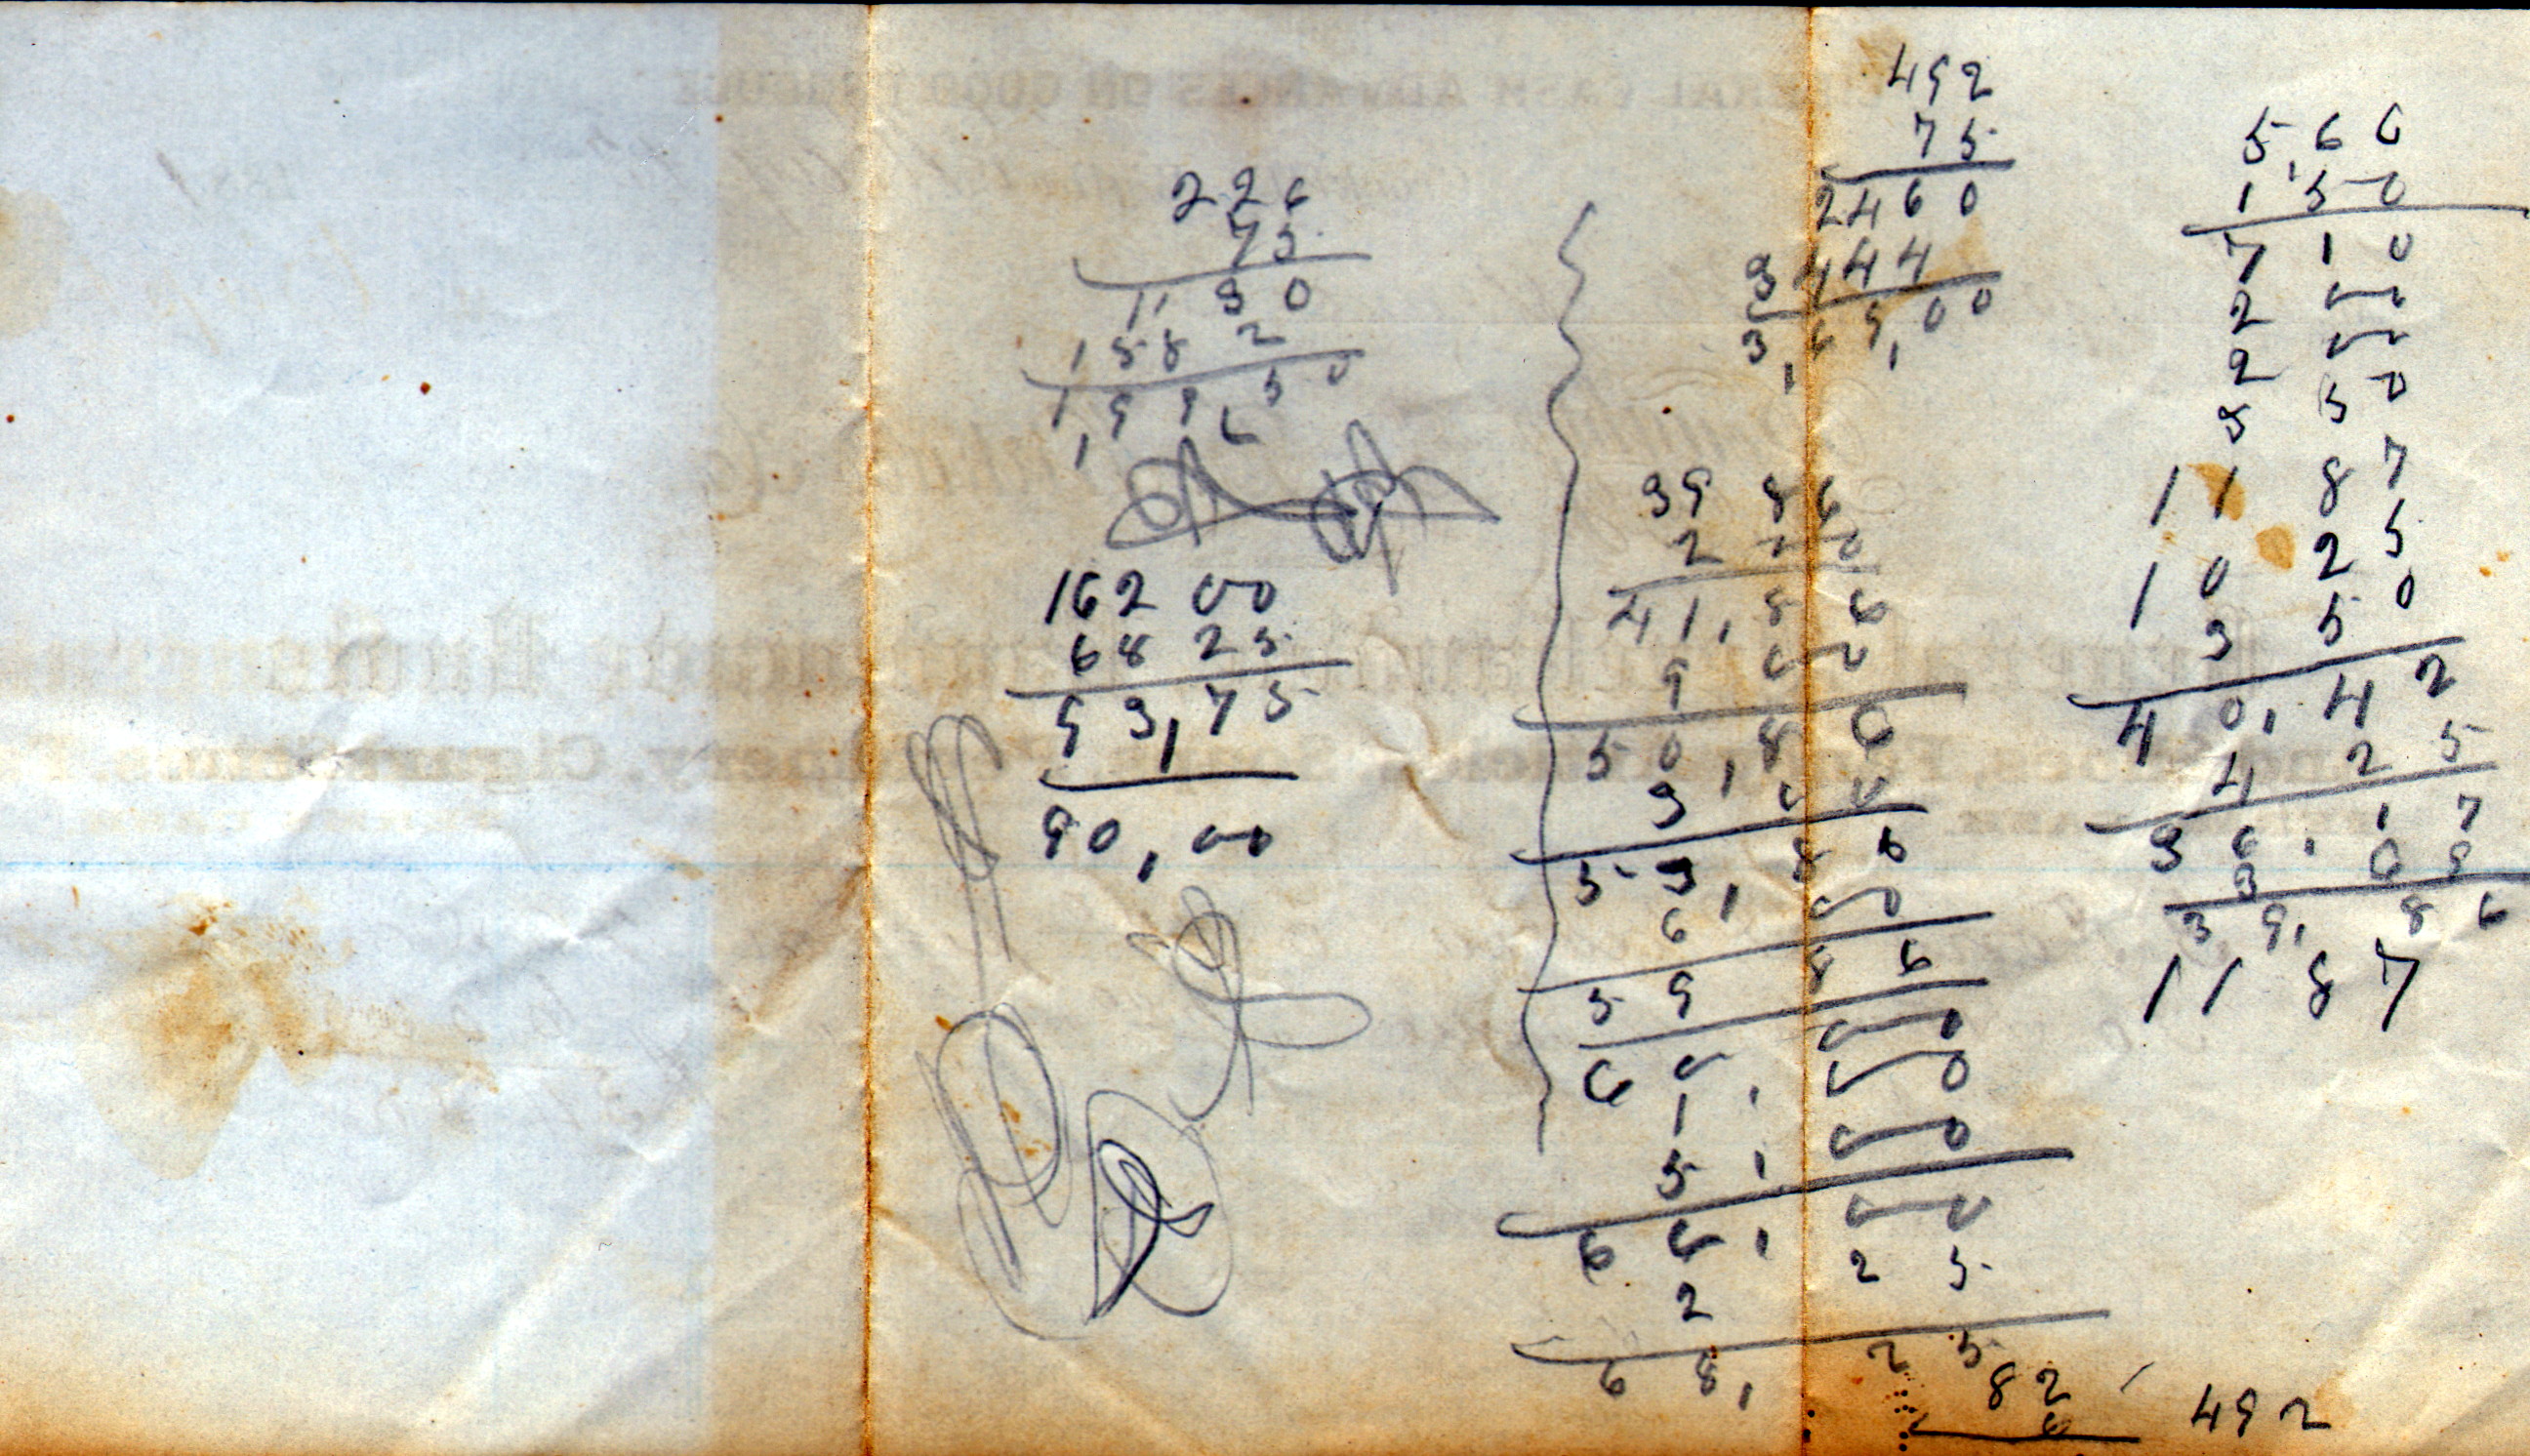 226
75
1130
1582
1,69,50
162 00
68 25
93,75
90,00
492
75
2460
3444
3,69,00
39 86
2 00
41,86
9 00
50,86
3,00
53,86
6,00
59 86
60,00
1,00
5,00
66,00
2 25
68,25
82
6
492
5,66
1,50
7 10
2 00
2 00
3 50
11 87
10 25
3 50
40,42
4 25
36,17
3 69
39,86
11 87